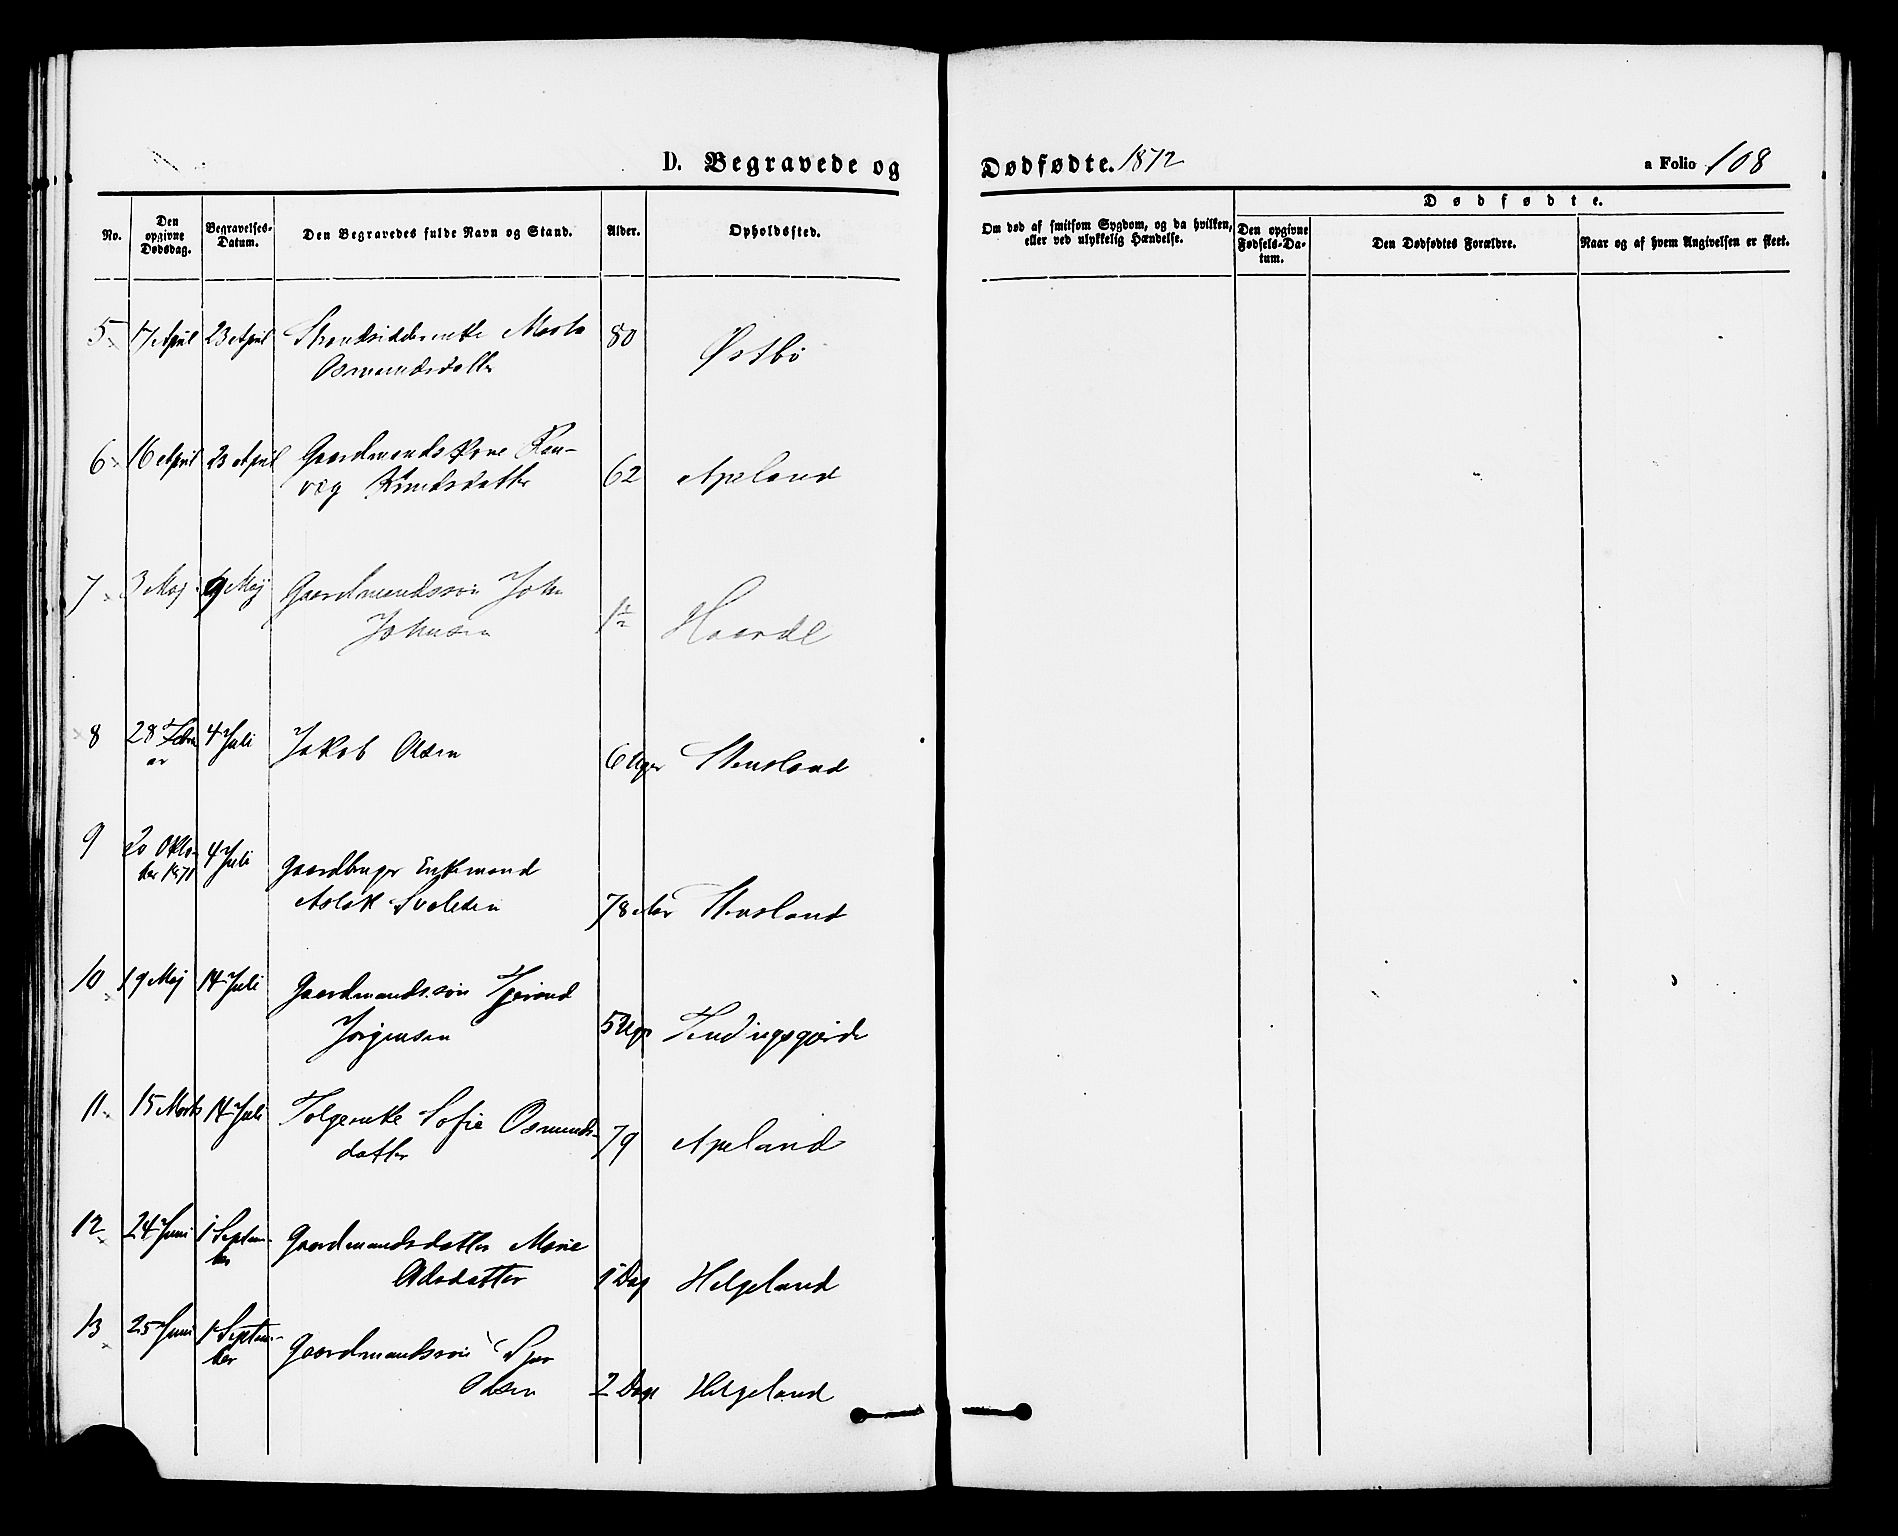 D. Begravede og Dødfødte. 1872
a Folio 108
No.
Den opgivne Dødsdag.
Begravelses-Datum.
Den Begravedes fulde Navn og Stand.
Alder.
Opholdssted.
Om død af smitsom Sygdom, og da hvilken,
eller ved ulykkelig Hændelse.
Dødfødte.
Den opgivne Fødsels-Datum.
Den Dødfødtes Forældre.
Naar og af hvem Angivelsen er skeet.
5 17 April 23 April Strandsidderenke Marta 80 Østbø
Osmundsdatter
6 16 April 23 April Gaardmands Kone Ran-
veg Knudsdatter 62 Apeland
7 3 Maj 9 Maj Gaardmandssøn John
Johnsen 1½ Haarde
8 28 Febru 4 Juli Jakob Olsen 6 Uger Stensland
ar
9 20 Okto- 4 Juli Gaardbruger Enkemand
ber 1871
Aslak 78 Aar Stensland
10 19 Maj 14 Juli Gaardmandssøn
Jørgensen 5 Uger
11 15 Marts 14 Juli Folgeenke Sofie Osmunds-
datter 79 Apeland
12 24 Juni 1 Septem- Gaardmandsdatter Marie
ber Olsdatter 1 Dag Helgeland
13 25 Juni 1 Septem- Gaardmandssøn
ber
Olsen 2 Dage Helgeland